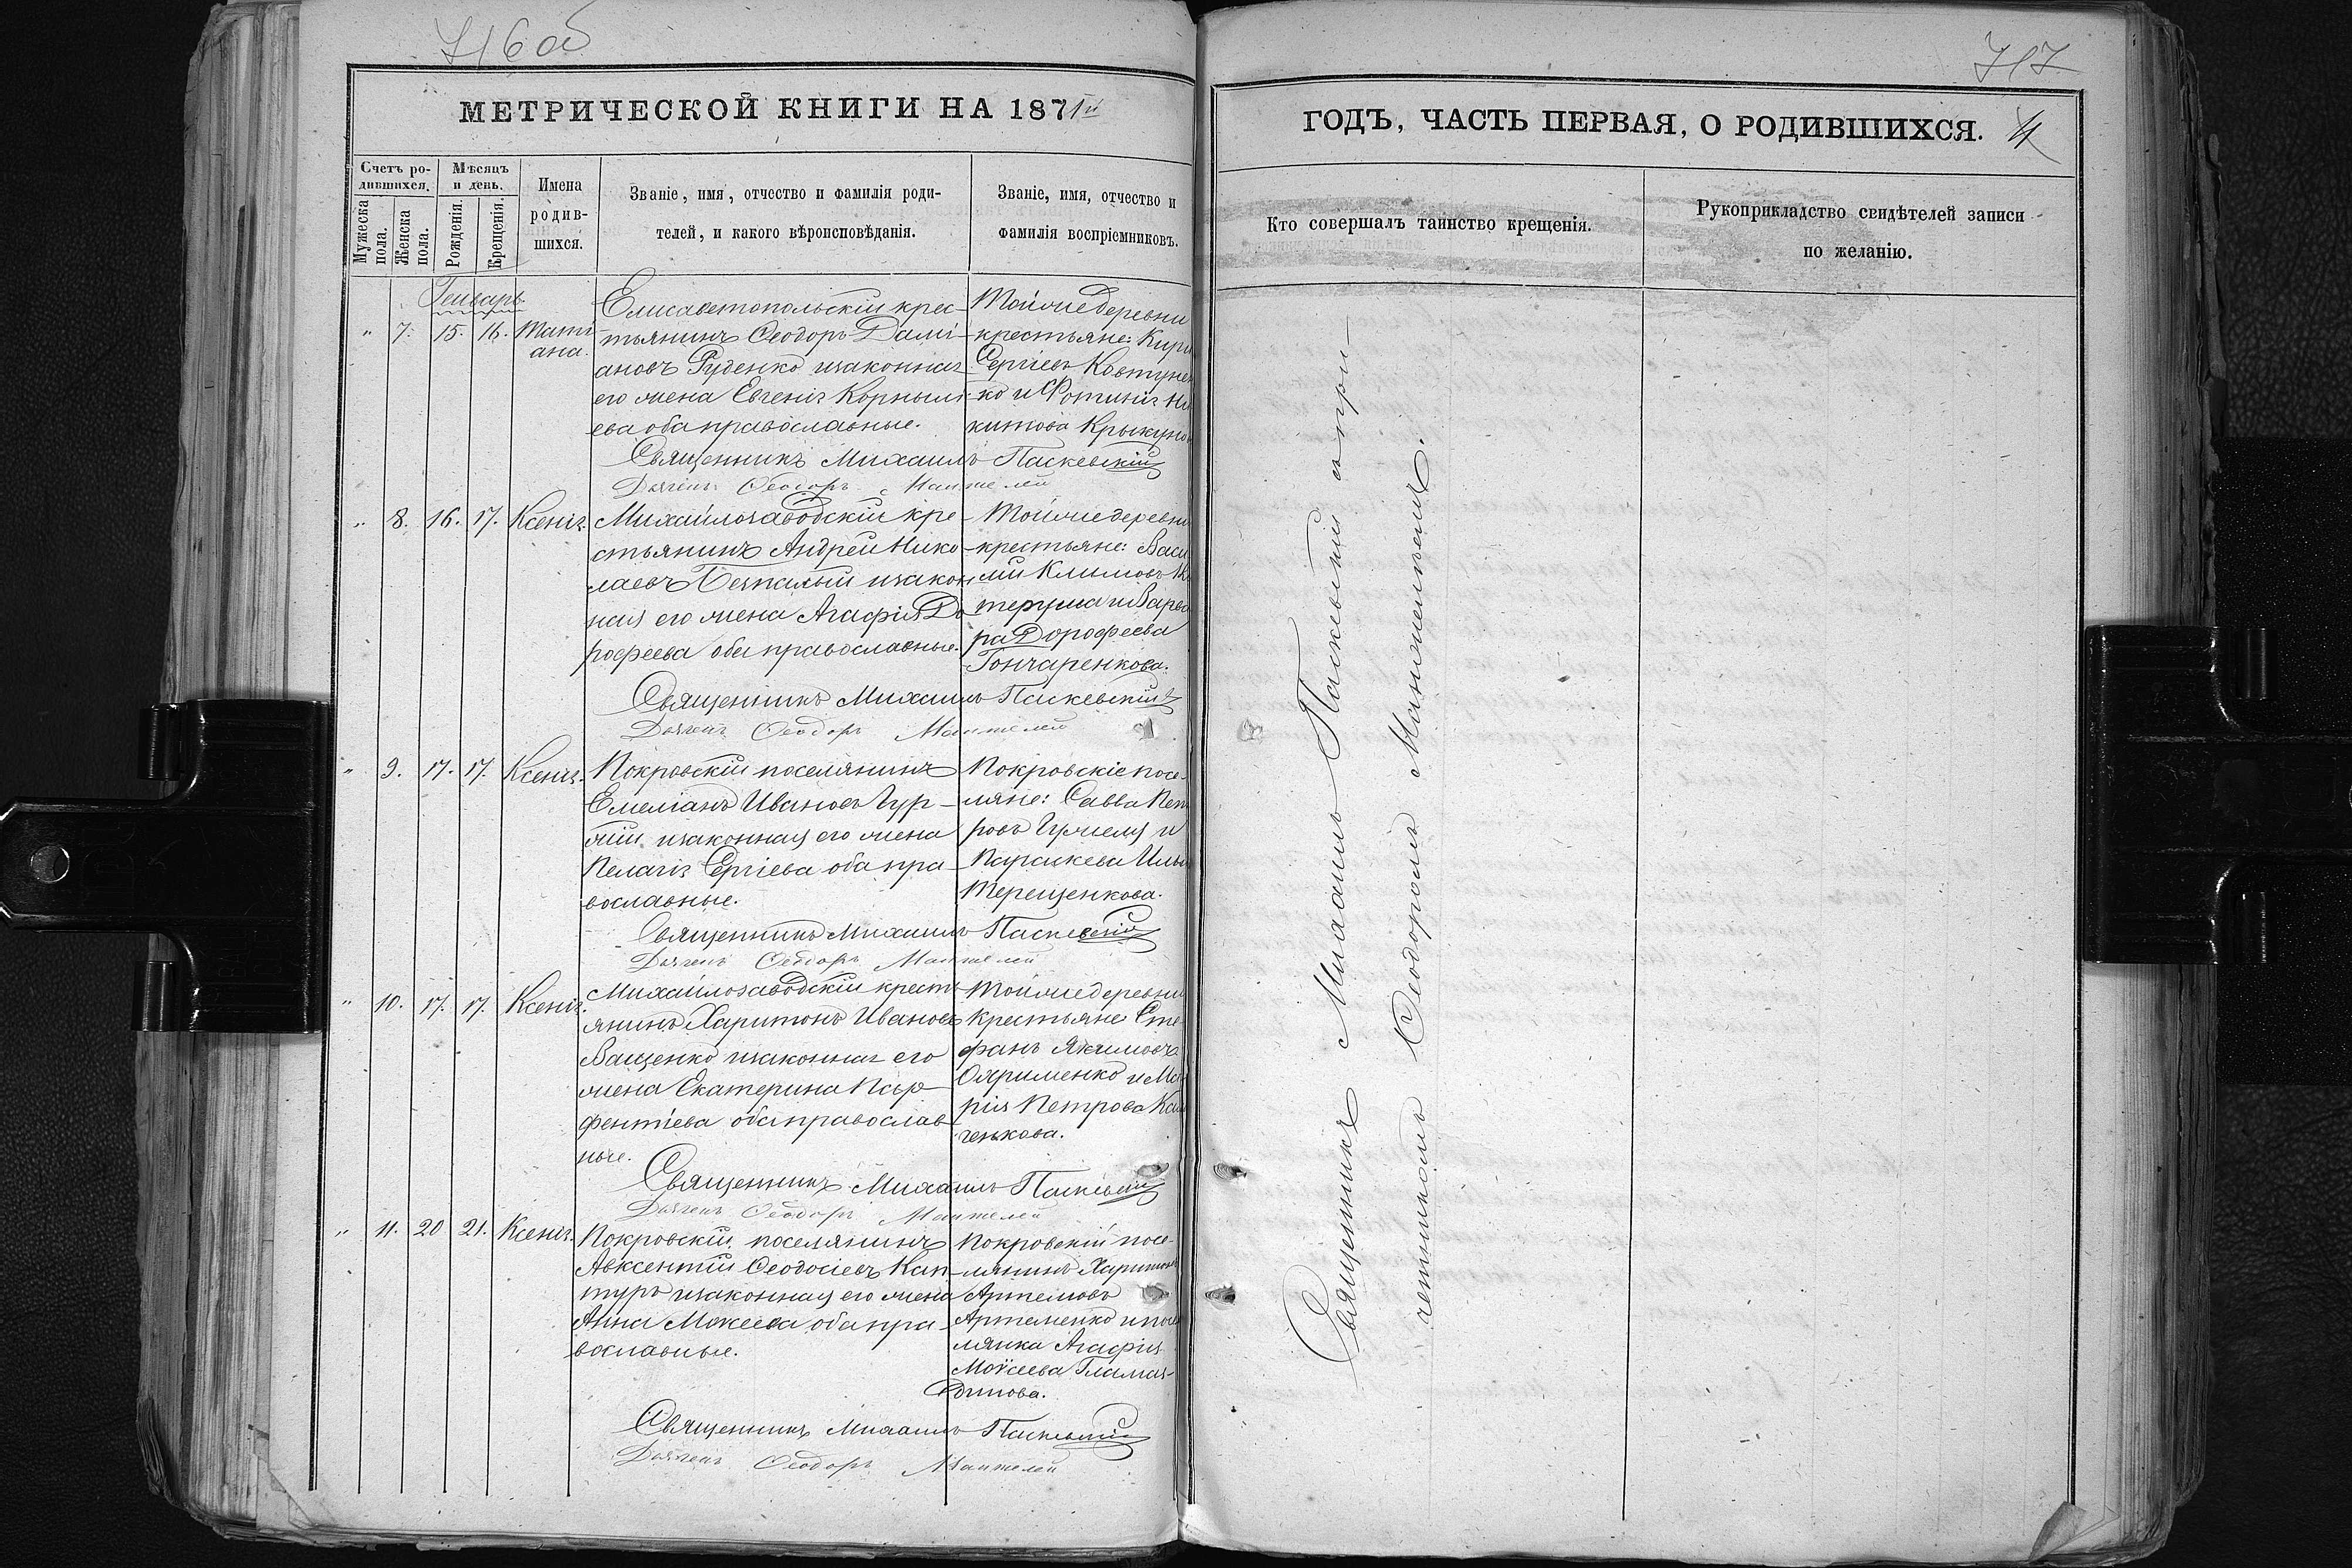 716 об
МЕТРИЧЕСКОЙ КНИГИ НА 1871й
Счетъ ро-
дившихся.
Мужеска пола.
Женска пола.
Мѣсяцъ
и день.
Рожденія.
Крещенія.
Имена
родив-
шихся.
Званіе, имя, отчество и фамилія роди-
телей, и какого вѣроисповѣданія.
Званіе, имя, отчество и
фамилія воспріемниковъ.
Генварь
" 7. 15. 16. Тати-
ана.
Елисаветопольскій крес-
тьянинъ Ѳеодоръ Дамі-
ановъ Руденко и законная
его жена Евгенія Корныли-
ева оба православные.
Тойже деревни
крестьяне:
Сергіевъ Ковтунен
ко и Фотинія Ни
китова
Священникъ Михаилъ Паскевскій
Дьячекъ Ѳеодоръ
" 8. 16. 17. Ксенія.
Михайлозаводскій кре-
стьянинъ Андрей Нико-
лаевъ Безпалый и закон
ная его жена Агафія До
рофеева оба православные.
Тойже деревни
крестьяне: Васи
лій Климовъ
и Варва
ра Дорофеева
Гончаренкова.
Священникъ Михаилъ Паскевскій
Дьячекъ Ѳеодоръ
" 9. 17. 17. Ксенія.
Покровскій поселянинъ
Емеліанъ Ивановъ Гур-
жій и законная его жена
Пелагія Сергіева оба пра-
вославные.
Покровскіе посе-
ляне: Савва Пет
ровъ и
Параскева Ильи
Терещенкова.
Священникъ Михаилъ Паскевскій
Дьячекъ Ѳеодоръ
" 10. 17. 17. Ксенія.
Михайлозаводскій кресть
янинъ Харитонъ Ивановъ
Ващенко и законная его
жена Екатерина Пар-
фентіева оба православ
ные.
Тойже деревни
крестьяне: Сте
фанъ Якимовъ
и Ма
рія Петрова
ченкова.
Священникъ Михаилъ Паскевскій
Дьячекъ Ѳеодоръ
" 11. 20 21. Ксенія.
Покровскій поселянинъ
Авксентій Ѳеодосіевъ Кап-
туръ и законная его жена
Анна Мокеева оба пра-
вославные.
Покровскій посе-
лянинъ Харитонъ
Артемовъ
Артеменко и посе
лянка Агафія
Моѵсеева Гламаз-
динова.
Священникъ Михаилъ Паскевскій
Дьячекъ Ѳеодоръ
717
ГОДЪ, ЧАСТЬ ПЕРВАЯ, О РОДИВШИХСЯ. 4
Кто совершалъ таинство крещенія.
Рукоприкладство свидѣтелей записи
по желанію.
Священникъ Михаилъ Паскевскій с при-
четникомъ Ѳеодоромъ